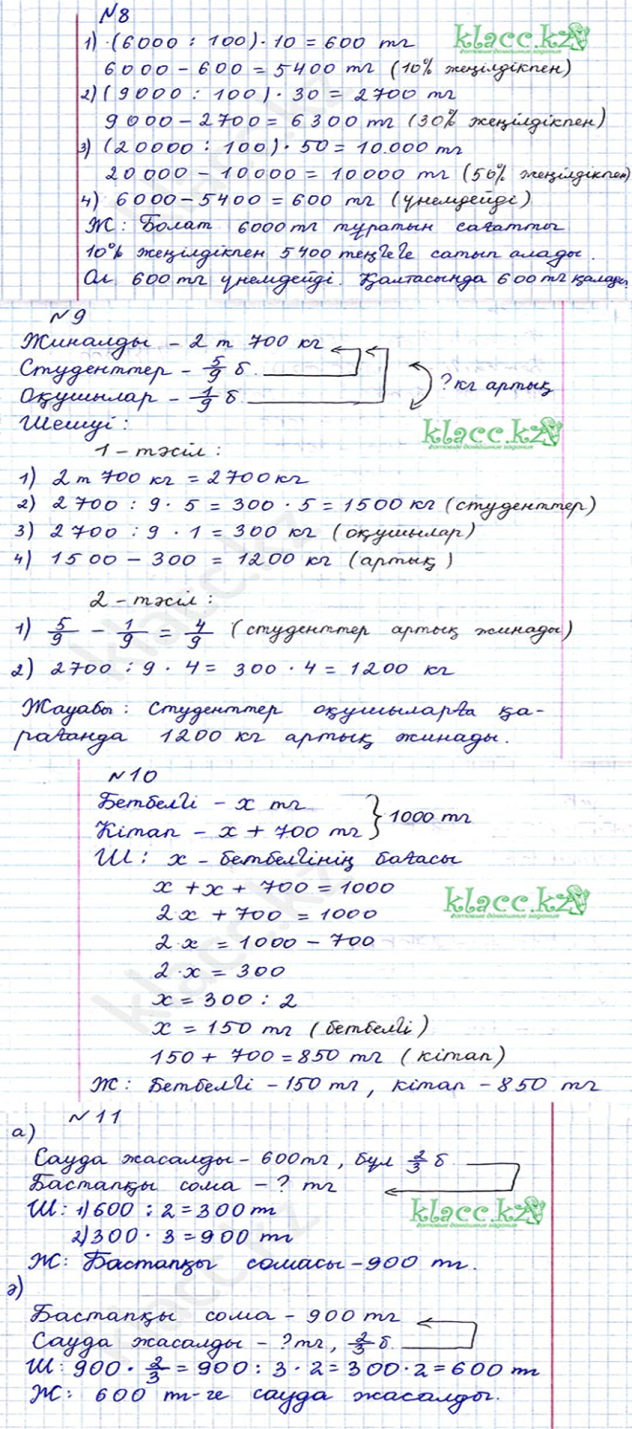 №8
1) (6000 : 100) · 10 = 600 тг
klacc.kz
6000 – 600 = 5400 тг (10% жеңілдікпен)
2) (9000 : 100) · 30 = 2700 тг
9000 – 2700 = 6300 тг (30% жеңілдікпен)
3) (20000 : 100) · 50 = 10.000 тг
20000 – 10000 = 10000 тг (50% жеңілдікпен)
4) 6000 – 5400 = 600 тг (үнемдейді)
Ж: Болат 6000 тг тұратын сағатты
10% жеңілдікпен 5400 теңгеге сатып алады.
Ол 600 тг үнемдейді. Қалтасында 600 тг қалады.
№9
Жиналды – 2 т 700 кг
Студенттер – 5/9 б.
Оқушылар – 1/9 б.
? кг артық
Шешуі:
klacc.kz
готовые домашние задания
1 – тәсіл:
1) 2 т 700 кг = 2700 кг
2) 2700 : 9 · 5 = 300 · 5 = 1500 кг (студенттер)
3) 2700 : 9 · 1 = 300 кг (оқушылар)
4) 1500 – 300 = 1200 кг (артық)
2 – тәсіл:
1) 5/9 – 1/9 = 4/9 (студенттер артық жинады)
2) 2700 : 9 · 4 = 300 · 4 = 1200 кг
Жауабы: Студенттер оқушыларға қа-
рағанда 1200 кг артық жинады.
№10
Бетбелгі – х тг
Кітап – х + 700 тг
} 1000 тг
Ш: х – бетбелгінің бағасы
х + х + 700 = 1000
klacc.kz
готовые домашние задания
2х + 700 = 1000
2·х = 1000 – 700
2·х = 300
х = 300 : 2
х = 150 тг (бетбелгі)
150 + 700 = 850 тг (кітап)
Ж: Бетбелгі – 150 тг, кітап – 850 тг
№11
а)
Сауда жасалды – 600 тг, бұл 2/3 б
Бастапқы сома – ? тг
Ш: 1) 600 : 2 = 300 т
klacc.kz
готовые домашние задания
2) 300 · 3 = 900 тг
Ж: Бастапқы сомасы – 900 тг.
ә)
Бастапқы сома – 900 тг
Сауда жасалды – ? тг, 2/3 б.
Ш: 900 · 2/3 = 900 : 3 · 2 = 300 · 2 = 600 т
Ж: 600 т-ге сауда жасалды.